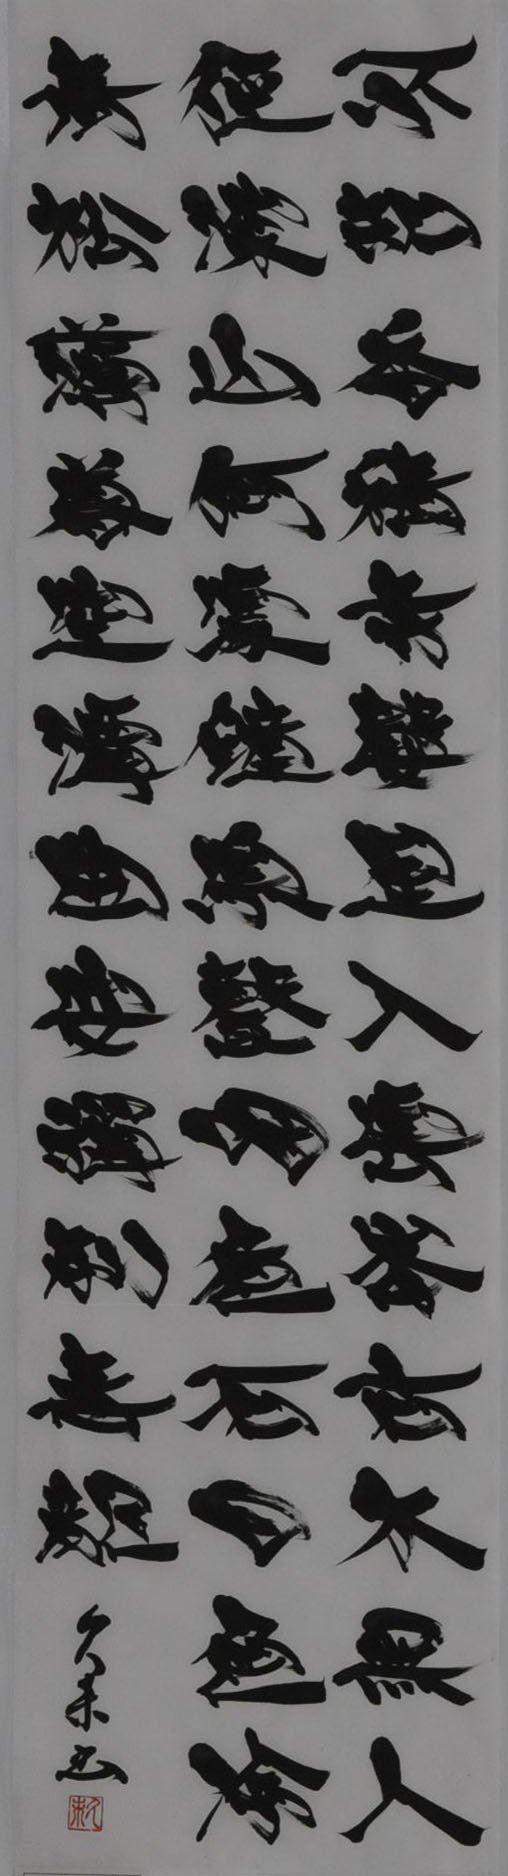 不知香積寺數里入雲峰古木無人
徑深山何處鐘泉聲咽危石日色冷
青松薄暮空潭曲安禪制毒龍